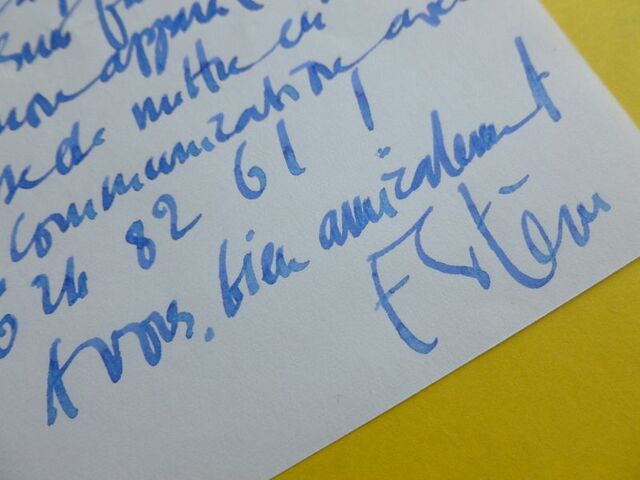 mon appara
de mettre en
communication avec
6 24 82 61 !
A vous, bien amicalement
Estève